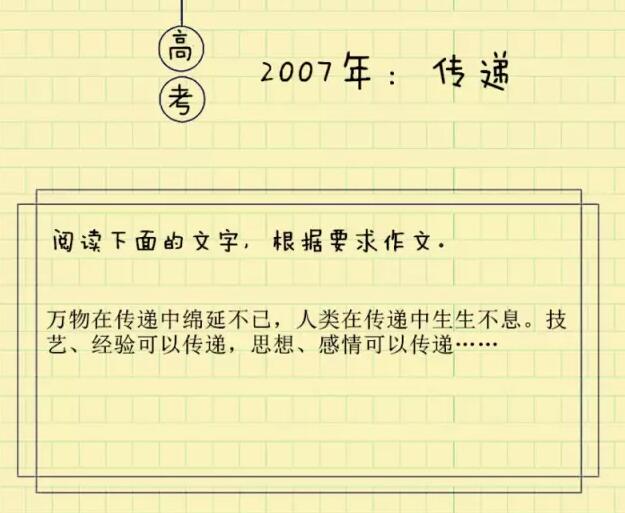 高
考
2007年：传递
阅读下面的文字，根据要求作文。
万物在传递中绵延不已，人类在传递中生生不息。技
艺、经验可以传递，思想、感情可以传递……